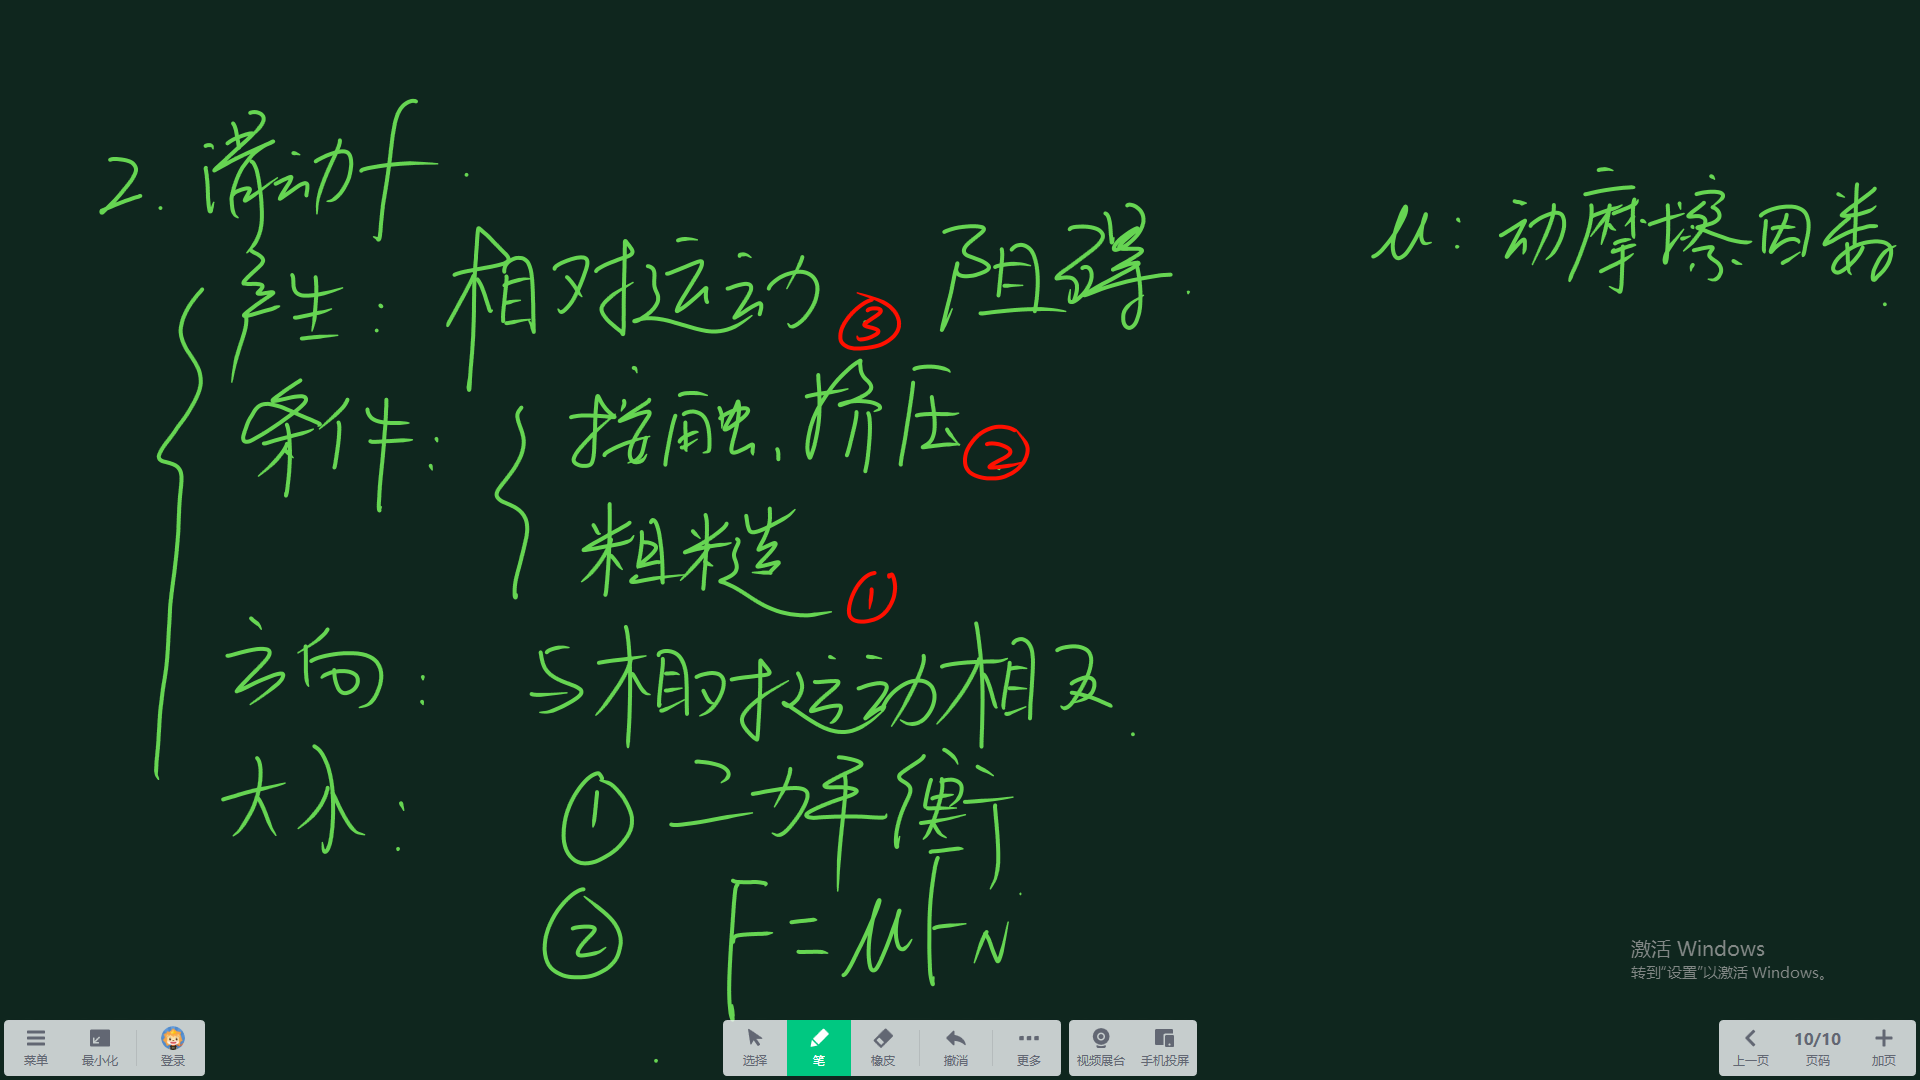 2. 滑动f.
μ: 动摩擦因数.
产生: 相对运动 ③ 阻碍.
条件: 接触、挤压 ②
粗糙 ①
方向: 与相对运动相反.
大小: ① 二力平衡
② F=μFN
激活 Windows
转到“设置”以激活 Windows。
菜单 最小化 登录 选择 笔 橡皮 撤消 更多 视频展台 手机投屏 上一页 10/10 页码 加页